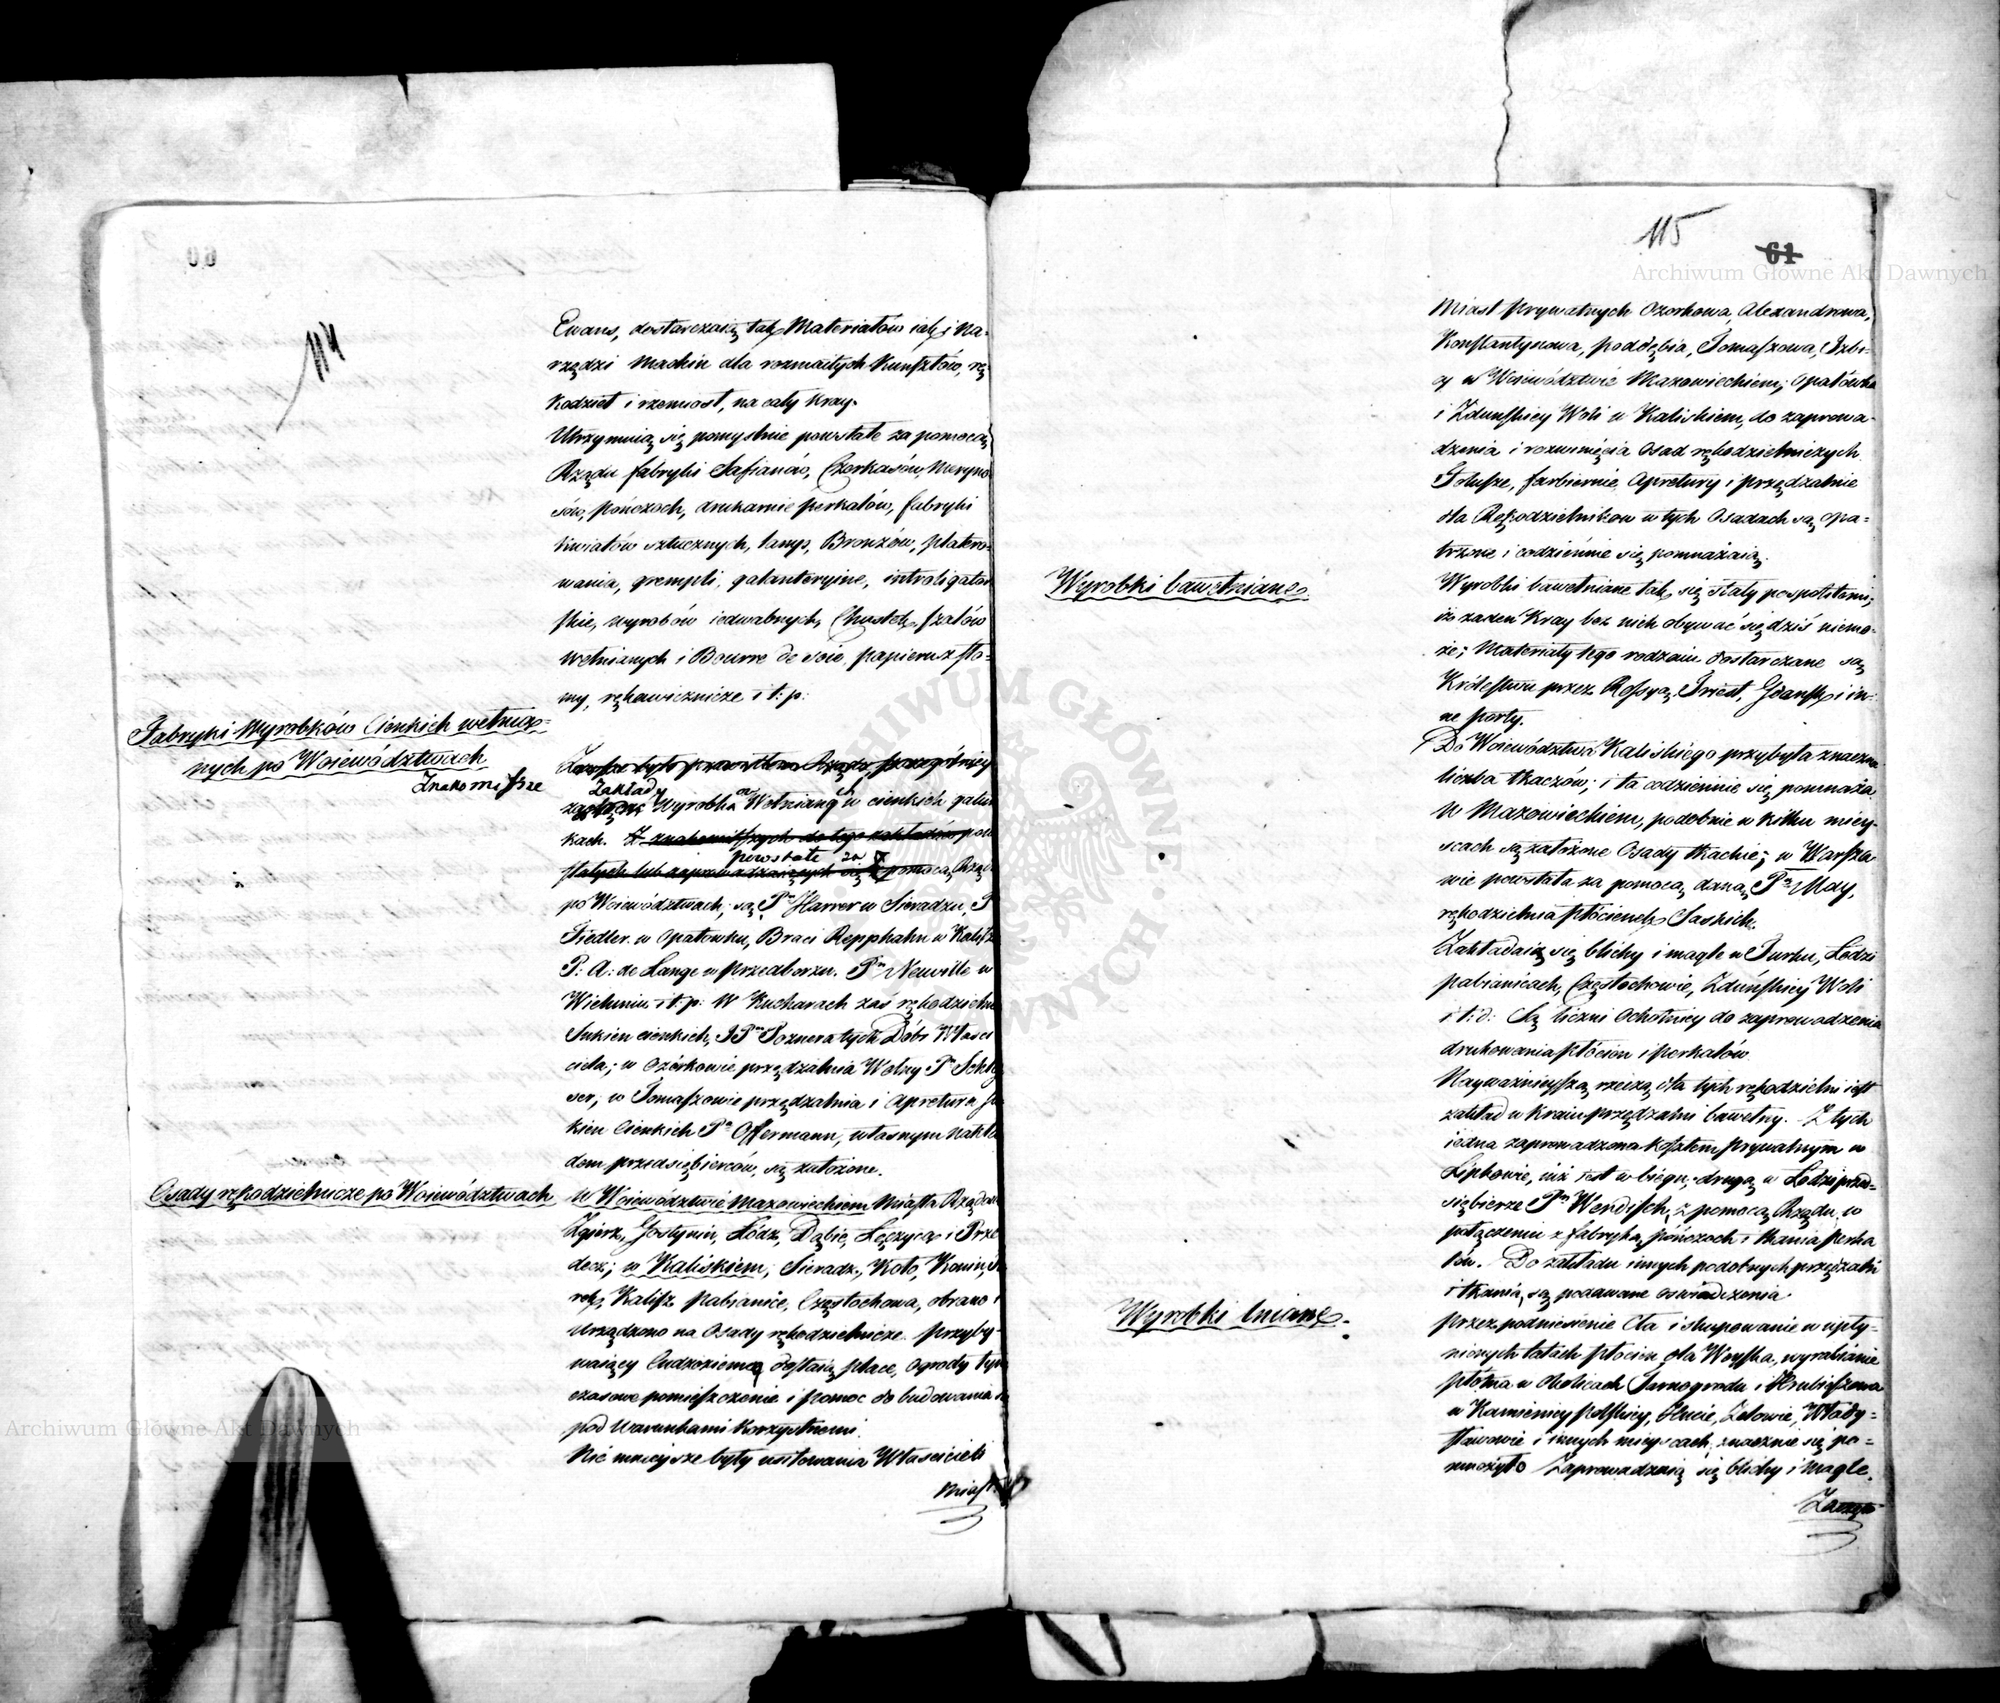 60
114
Ewans, dostarczaią tak Materiałów iak i Na-
rzędzi Machin dla rozmaitych Kunsztów, rę
kodzieł i rzemiosł, na cały Kray.
Utrzymuią się pomyślnie powstałe za pomocą
Rządu fabryki Safianów, Czerkasów, Meryno
sów, pończoch, drukarnie perkalów, fabryki
kwiatów sztucznych, lamp, Bronzów, platero-
wania, grempli, galanteryine, introligator
skie, wyrobów iedwabnych, Chustek, szalów
wełnianych i Bourre de soie, papieru z sło-
my, rękawicznicze i t: p:
Fabryki Wyrobków Cienkich wełnia-
nych po Woiewództwach
Znakomitsze
Zawsze było prawidłem Rządu, szczególniey
Zakłady
Wyrobka Wełnianych w cienkich gatun
kach. Z znakomitszych do tego zakładów pow
powstałe za
stałych lub zaprowadzaiących się z pomocą Rządu
po Woiewództwach, są, Pn Harrer w Sieradzu, P
Fiedler w Opatówku, Braci Repphahn w Kalisz
P: A: de Lange w Przedborzu. Pn Neuville w
Wieluniu i t: p: W Kucharach zaś rękodzielni
Sukien cienkich, JPn Poznera tych Dóbr Właści
ciela; w Ozorkowie przędzalnia Wełny Pn Schlös
ser; w Tomaszowie przędzalnia i Apretura Su
kien Cienkich Pn Offermann, własnym Nakła
dem przedsiębierców, są założone.
Osady rękodzielnicze po Woiewództwach
W Woiewództwie Mazowieckiem Miasta Rządowe
Zgierz, Gostynin, Łódz, Dąbie, Łęczyca i Prze
decz; w Kaliskiem, Sieradz, Koło, Konin,
rek, Kalisz Pabianice, Częstochowa, obrano i
Urządzono na Osady rękodzielnicze. Przyby-
waiący Cudzoziemcy dostaią place, Ogrody tym
czasowe pomieszczenie i pomoc do budowania
pod Warunkami Korzystnemi.
Nie mnieysze były usiłowania Właścicieli
Miast
115
61
Miast Prywatnych Ozorkowa, Alexandrowa,
Konstantynowa, Poddębia, Tomaszowa, Izbi-
cy w Woiewództwie Mazowieckiem; Opatówka
i Zduńskiey Woli w Kaliskiem, do zaprowa-
dzenia i rozwinięcia Osad rękodzielniczych.
Folusze, farbiernie, Apretury i przędzalnie
dla Rękodzielników w tych Osadach są opa-
trzone i codziennie się pomnażaią.
Wyrobki bawełniane
Wyrobki bawełniane tak się stały pospolitemi,
iż żaden Kray bez nich obywać się dziś niemo-
że; Materiały tego rodzaiu dostarczane są
Królestwu przez Rossyą, Triest, Gdańsk i in-
ne porty.
Do Woiewództwa Kaliskiego przybyła znaczna
liczba tkaczów; i ta codziennie się pomnaża.
W Mazowieckiem, podobnie w kilku miey-
scach są założone Osady tkackie; w Warsza
wie powstała za pomocą daną Pn May,
rękodzielnia płócienek Saskich.
Zakładaią się blichy i magle w Turku, Łodzi
Pabianicach, Częstochowie, Zduńskiey Woli
i t: d: Są liczni Ochotnicy do zaprowadzenia
drukowania płócien i perkalów.
Nayważnieyszą rzeczą dla tych rękodzielni iest
zakład w Kraiu przędzalni bawełny. Z tych
iedna zaprowadzona kosztem prywatnym w
Lipkowie, iuż iest w biegu, drugą w Łodzi przed-
siębierze Pn Wendisch, z pomocą Rządu, w
połączeniu z fabryką pończoch i tkania perka
lów. Do zakładu innych podobnych przędzalń
i tkania, są podawane oświadczenia.
Wyrobki lniane.
Przez podniesienie Cła i skupowanie w upły-
nionych latach płócien dla Woyska, wyrabianie
płótna w okolicach Tarnogrodu i Hrubieszowa
w Kamienicy Polskiey, Zelowie, Włady-
sławowie i innych mieyscach, znacznie się po-
mnożyło. Zaprowadzaią się blichy i magle.